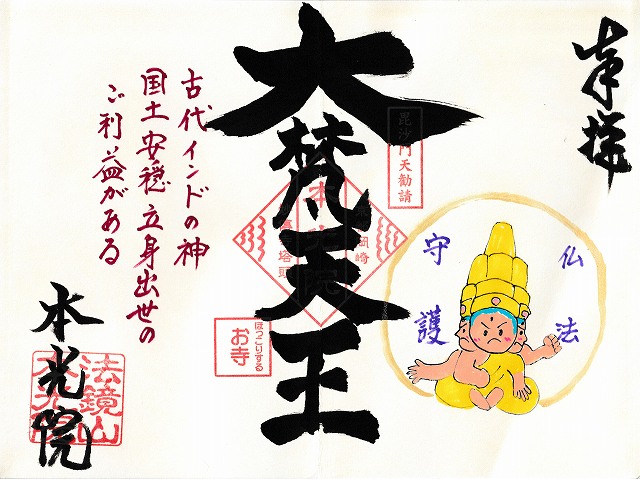 奉拝
毘沙門天勧請
大梵天王
仏法
守護
古代インドの神
国土安穏立身出世の
ご利益がある
ほっこりする
お寺
本光院
法鏡山
本光院